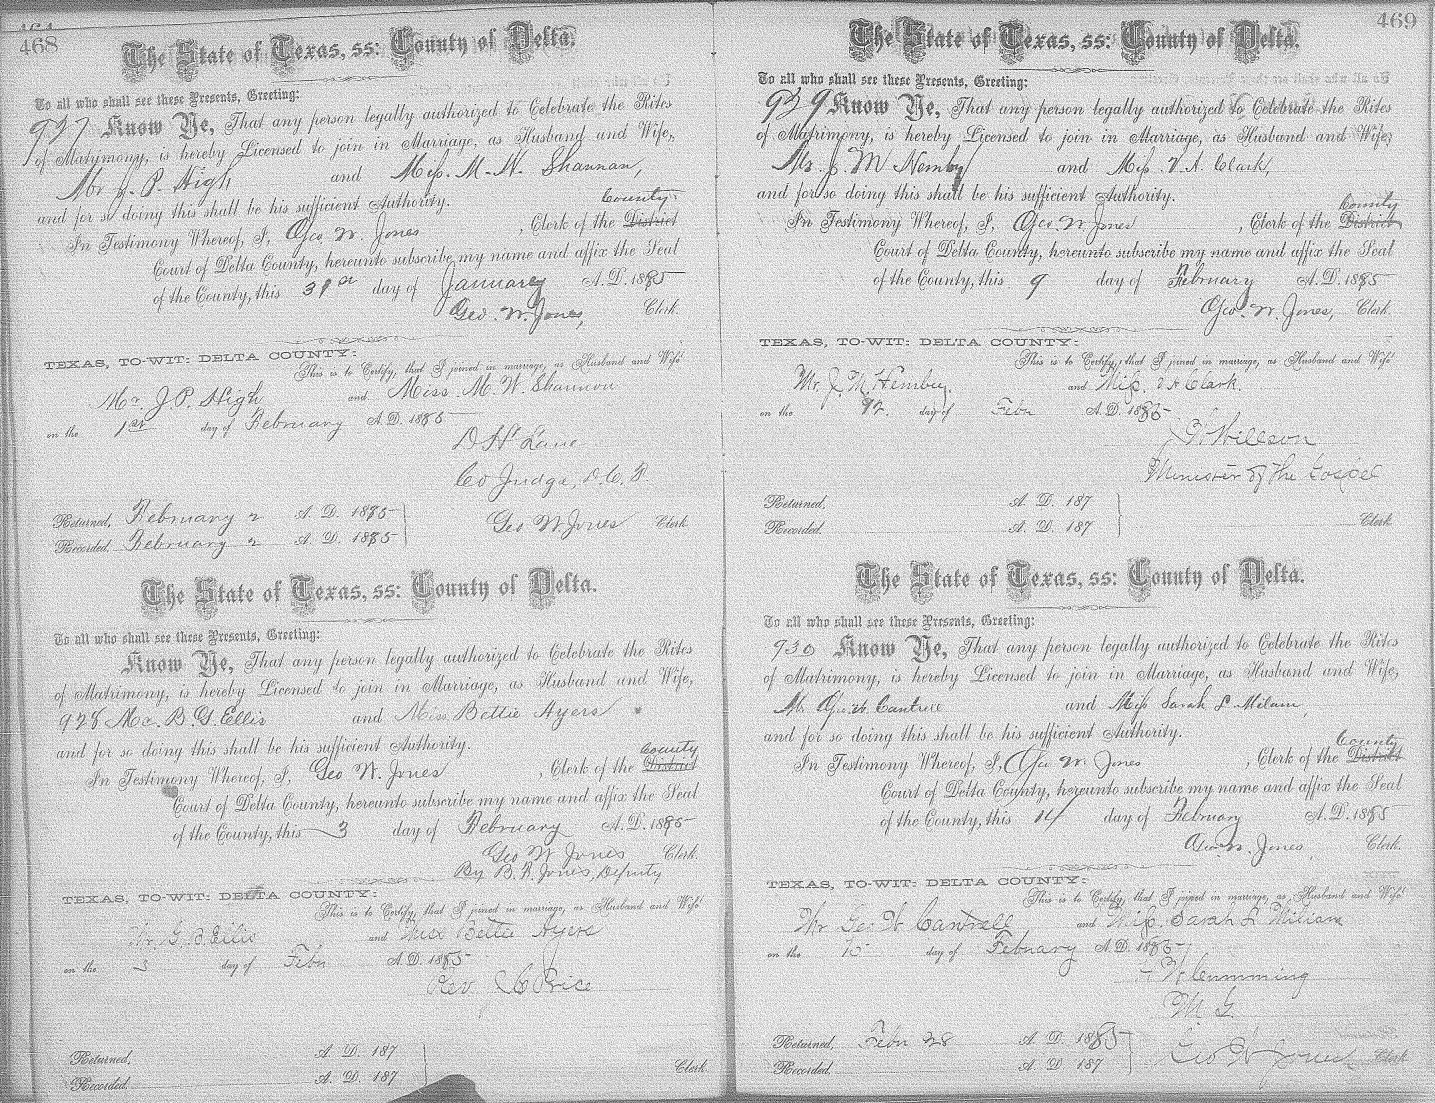 468
The State of Texas, ss: County of Delta.
To all who shall see these Presents, Greeting:
927 Know Ye, That any person legally authorized to Celebrate the Rites
of Matrymony, is hereby Licensed to join in Marriage, as Husband and Wife,
Mr J. P. High and Miss. M. W. Shannan,
and for so doing this shall be his sufficient Authority.
County
In Testimony Whereof, I, Geo. W. Jones, Clerk of the District
Court of Delta County, hereunto subscribe my name and affix the Seal
of the County, this 31st day of January A. D. 1885
Geo. W. Jones, Clerk.
TEXAS, TO-WIT: DELTA COUNTY:
This is to Certify, that I joined in marriage, as Husband and Wife
Mr J. P. High and Miss. M. W. Shannon
on the 1st day of February A. D. 1885
D H Lane
Co Judge, D. C. T.
Returned, February 2 A. D. 1885
Recorded, February 2 A. D. 1885
Geo W. Jones Clerk
The State of Texas, ss: County of Delta.
To all who shall see these Presents, Greeting:
Know Ye, That any person legally authorized to Celebrate the Rites
of Matrimony, is hereby Licensed to join in Marriage, as Husband and Wife,
928 Mr. B. G. Ellis and Miss Bettie Ayers
and for so doing this shall be his sufficient Authority.
County
In Testimony Whereof, I, Geo W. Jones, Clerk of the District
Court of Delta County, hereunto subscribe my name and affix the Seal
of the County, this 3 day of February A. D. 1885
Geo W Jones Clerk.
By B. R. Jones, Deputy
TEXAS, TO-WIT: DELTA COUNTY:
This is to Certify, that I joined in marriage, as Husband and Wife
Mr. G. B. Ellis and Miss Bettie Ayers
on the 3 day of Febr A. D. 1885
Rev Price
Returned, A. D. 187
Recorded, A. D. 187
Clerk.
469
The State of Texas, ss: County of Delta.
To all who shall see these Presents, Greeting:
929 Know Ye, That any person legally authorized to Celebrate the Rites
of Matrimony, is hereby Licensed to join in Marriage, as Husband and Wife,
Mr. J. M Hemby and Miss. V. A. Clark,
and for so doing this shall be his sufficient Authority.
County
In Testimony Whereof, I, Geo. W Jones, Clerk of the District
Court of Delta County, hereunto subscribe my name and affix the Seal
of the County, this 9 day of February A. D. 1885
Geo. W. Jones, Clerk.
TEXAS, TO-WIT: DELTA COUNTY:
This is to Certify, that I joined in marriage, as Husband and Wife
Mr. J. M. Hembey and Miss. V A Clark.
on the day of Febr A. D. 1885
Willson
Minister of the Gospel
Returned, A. D. 187
Recorded, A. D. 187
Clerk
The State of Texas, ss: County of Delta.
To all who shall see these Presents, Greeting:
930 Know Ye, That any person legally authorized to Celebrate the Rites
of Matrimony, is hereby Licensed to join in Marriage, as Husband and Wife,
Mr Geo. W. Cantrell and Miss Sarah L Milam,
and for so doing this shall be his sufficient Authority.
County
In Testimony Whereof, I, Geo W. Jones, Clerk of the District
Court of Delta County, hereunto subscribe my name and affix the Seal
of the County, this 14 day of February A. D. 1885
Geo. W. Jones Clerk.
TEXAS, TO-WIT: DELTA COUNTY:
This is to Certify, that I joined in marriage, as Husband and Wife
Mr Geo W Cantrell and Miss. Sarah L Miliam
on the 15 day of February A. D. 1885
Cumming
M. G.
Returned, Febr 28 A. D. 1885
Recorded, A. D. 187
Geo W Jones Clerk